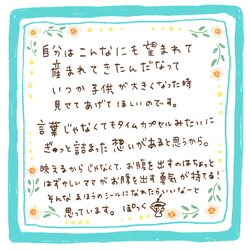 自分はこんなにも望まれて
産まれてきたんだなって
いつか子供が大きくなった時
見せてあげてほしいのです。
言葉じゃなくてもタイムカプセルみたいに
ぎゅっと詰まった想いがあると思うから。
映えるからじゃなくて、お腹を出すのはちょっと
はずかしいママがお腹を出す勇気が持てる!
そんなまほうのシールになれたらいいなーと
思っています。